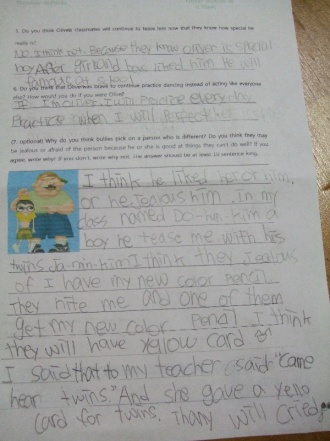 5. Do you think Oliver's classmates will continue to tease him now that they know how special he
really is?
No I think not. Because they know oliver is special
boy After girl and boys liked him He will
famous at school
6. Do you think that Oliver was brave to continue practice dancing instead of acting like everyone
else? How would you do if you were Oliver?
If I'm oliver I will practice everyday
Practice when I will perfect
(7. optional) Why do you think bullies pick on a person who is different? Do you think they may
be jealous or afraid of the person because he or she is good at things they can't do well? If you
agree, write why. If you don't, write why not. The answer should be at least 10 sentence long.
I think he liked her or him.
or he Jealous him. in my
class named Do-hun-Kim a
boy he tease me with his
twins Ja-min-Kim I think they Jealous
of I have my new color pencil
They hite me and one of them
get my new color Pencil I think
they will have Yellow card
I said that to my teacher asaid "Came
hear twins." And she gave a yello
card for twins. Thany will Cried